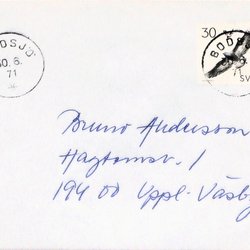 ODSJÖ
30. 6.
71
30
BODSJ
71
SV
Bruno Andersson
Hagtornst. 1
194 00 Uppl-Väsby